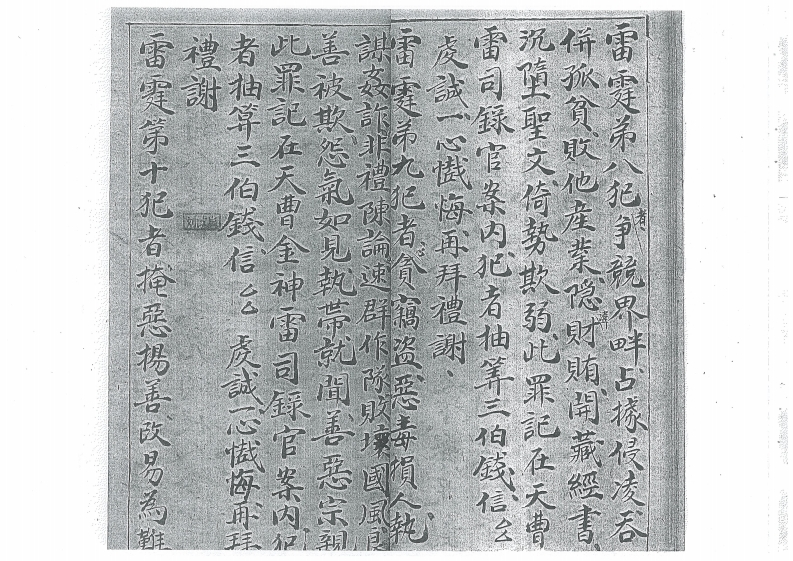 雷霆弟八犯者爭競界畔占據侵凌吞
併孤貧敗他産業隐財賄開藏經書
沉墮聖文倚勢欺弱此罪記在天曹
雷司録官案内犯者抽筭三伯錢信厶
虔誠一心懴悔再拜禮謝
雷霆弟九犯者貪竊盗惡毒損人執
謀姦詐非禮陳論速群作隊敗壞國風
善被欺怨氣如見執帶就聞善惡宗親
此罪記在天曹金神雷司録官案内犯
者抽筭三伯錢信厶 虔誠一心懴悔再拜
禮謝
雷霆第十犯者掩惡揚善改易為難